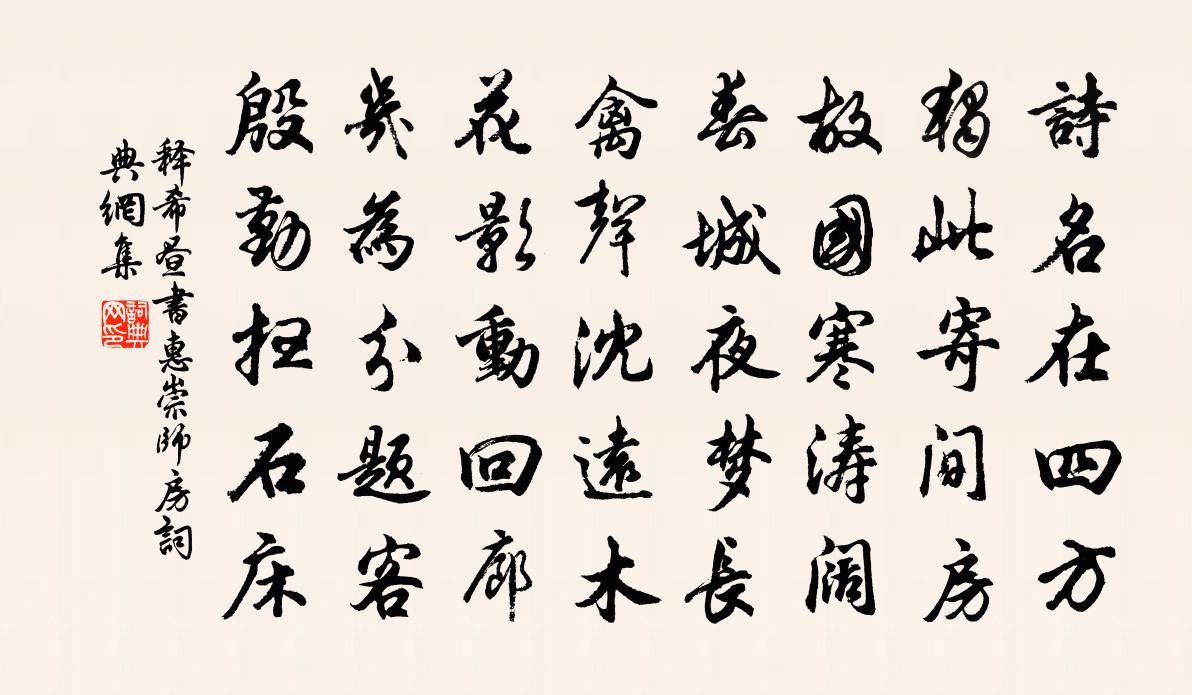 詩名在四方
獨此寄間房
故國寒涛阔
春城夜梦長
禽聲沈遠木
花影動回廊
幾為分題客
殷勤扫石床
释希昼書惠崇師房詞
典網集
詞典网印